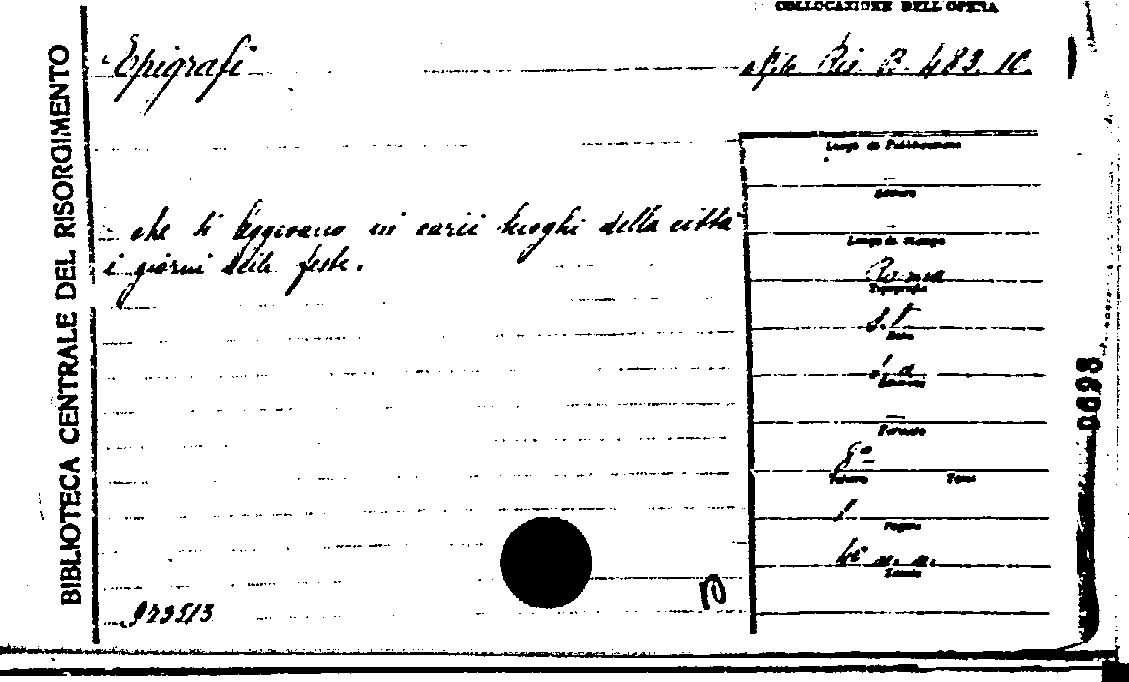 COLLOCAZIONE DELL'OPERA
BIBLIOTECA CENTRALE DEL RISORGIMENTO
Epigrafi
Ris. B. 483. 10.
Luogo di Pubblicazione
Editore
che si leggevano in varii luoghi della città
Luogo di stampa
i giorni delle feste.
Roma
Tipografia
s. t.
Data
s. a.
Edizione
Formato
8º
Volume Tomo
1
Pagine
n. n.